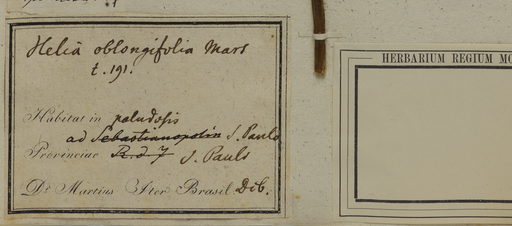 Helia oblongifolia Mart
t. 191.
Habitat in paludosis
ad Sebastianopolin S. Paulo
Provinciae R. d. J S. Paulo
Dr. Martius Iter Brasil. Dcb.
HERBARIUM REGIUM MO